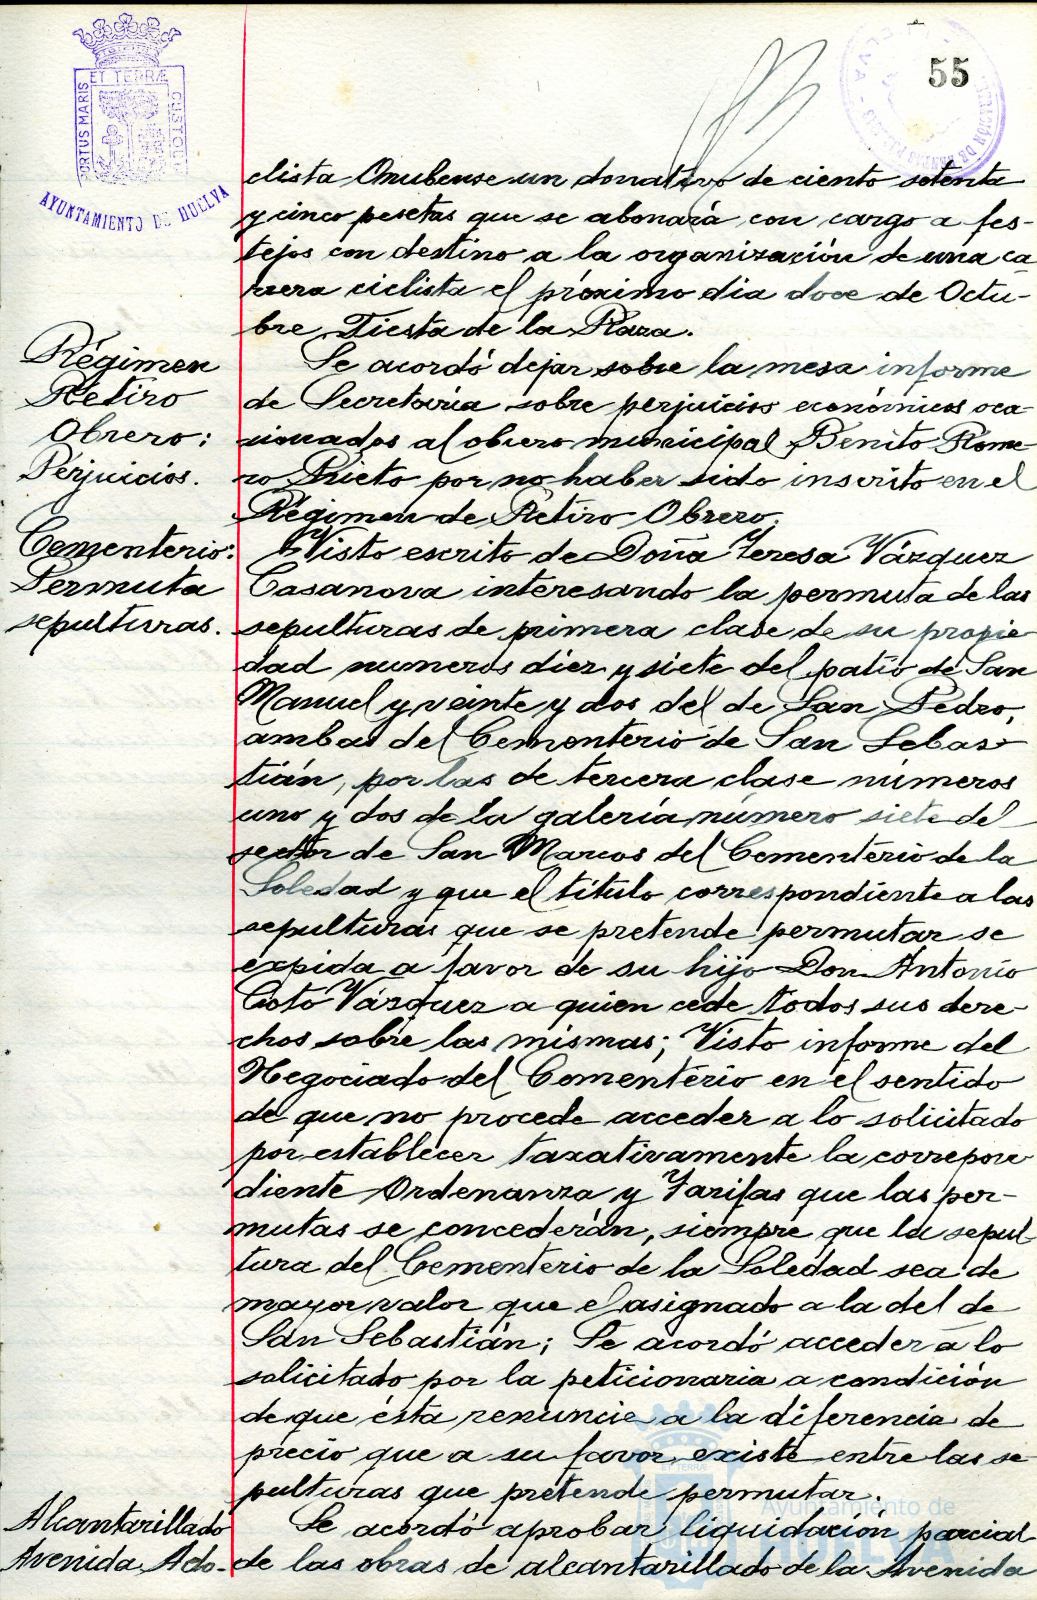 55
ET TERRÆ
PORTUS MARIS
CUSTODIA
AYUNTAMIENTO DE HUELVA
clista Onubense un donativo de ciento setenta
y cinco pesetas que se abonará con cargo a fes-
tejos con destino a la organización de una ca
rrera ciclista el próximo dia doce de Octu-
bre, Fiesta de la Raza.
Régimen
Retiro
Obrero:
Perjuicios.
Se acordó dejar sobre la mesa informe
de Secretaría sobre perjuicios económicos oca
sionados al obrero municipal Benito Rome-
ro Prieto por no haber sido inscrito en el
Régimen de Retiro Obrero.
Cementerio:
Permuta
sepulturas.
Visto escrito de Doña Teresa Vázquez
Casanova interesando la permuta de las
sepulturas de primera clase de su propie
dad numeros diez y siete del patio de San
Manuel y veinte y dos del de San Pedro,
ambas del Cementerio de San Sebas
tián, por las de tercera clase números
uno y dos de la galería número siete del
sector de San Marcos del Cementerio de la
Soledad y que el título correspondiente a las
sepulturas que se pretende permutar se
expida a favor de su hijo Don Antonio
Coto Vázquez a quien cede todos sus dere-
chos sobre las mismas; Visto informe del
Negociado del Cementerio en el sentido
de que no procede acceder a lo solicitado
por establecer taxativamente la correpon
diente Ordenanza y Tarifas que las per-
mutas se concederán, siempre que la sepul
tura del Cementerio de la Soledad sea de
mayor valor que el asignado a la del de
San Sebastián; Se acordó acceder a lo
solicitado por la peticionaria a condición
de que ésta renuncie a la diferencia de
precio que a su favor existe entre las se
pulturas que pretende permutar.
Alcantarillado
Avenida Ado-
Se acordó aprobar liquidación parcial
de las obras de alcantarillado de la Avenida
Ayuntamiento de
HUELVA